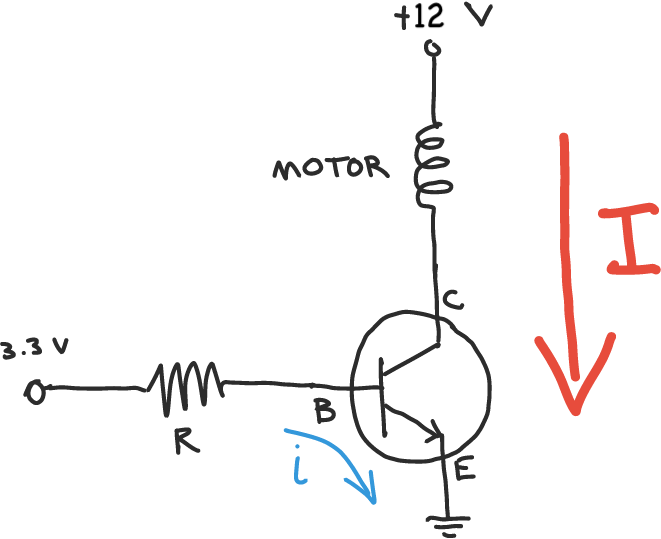 +12 V
MOTOR
I
C
3.3 V
B
R
i
E